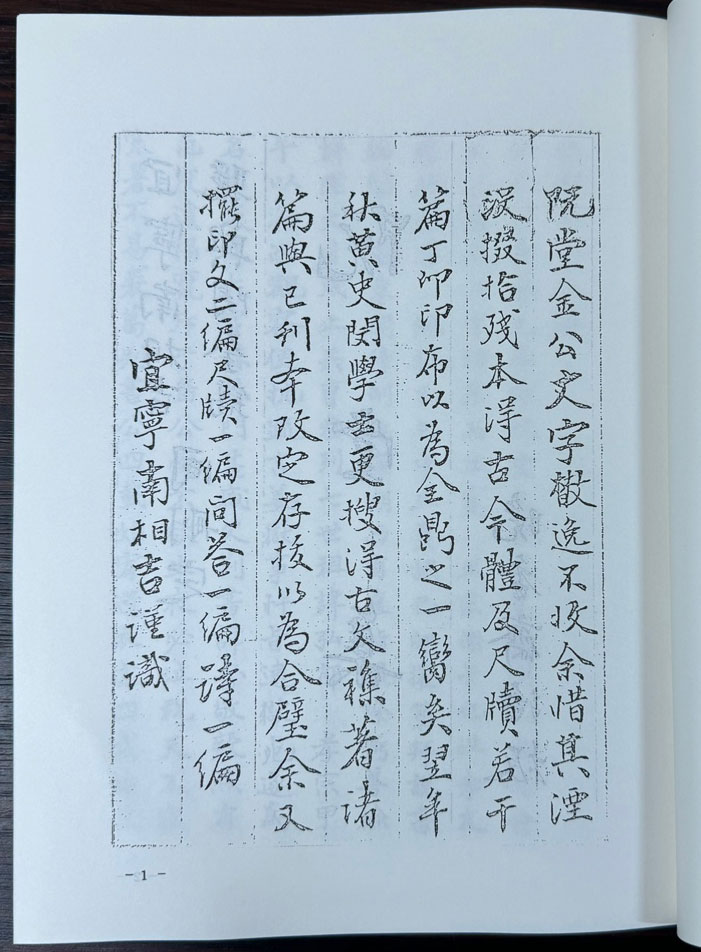 阮堂金公文字散逸不收余惜其湮
沒掇拾殘本淂古今體及尺牘若干
篇丁卯印布以為全鼎之一臠矣翌年
秋黄史閔學士更搜淂古文雜著諸
篇與已刊本改定存拔以為合璧余又
擺印文二編尺牘一編问答一編 一編
宜寧南相吉謹識
- 1 -